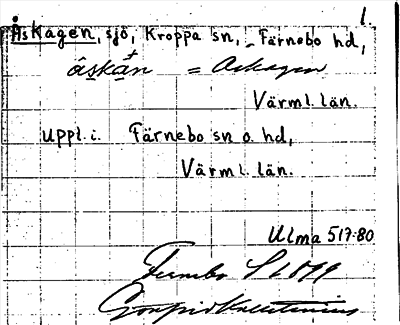 1.
Åskagen, sjö, Kroppa sn, Färnebo hd,
åskån = Askagen
Värml. län.
Uppl. i. Färnebo sn o. hd,
Värml. län.
Ulma 517:80
Färnebo S 1899